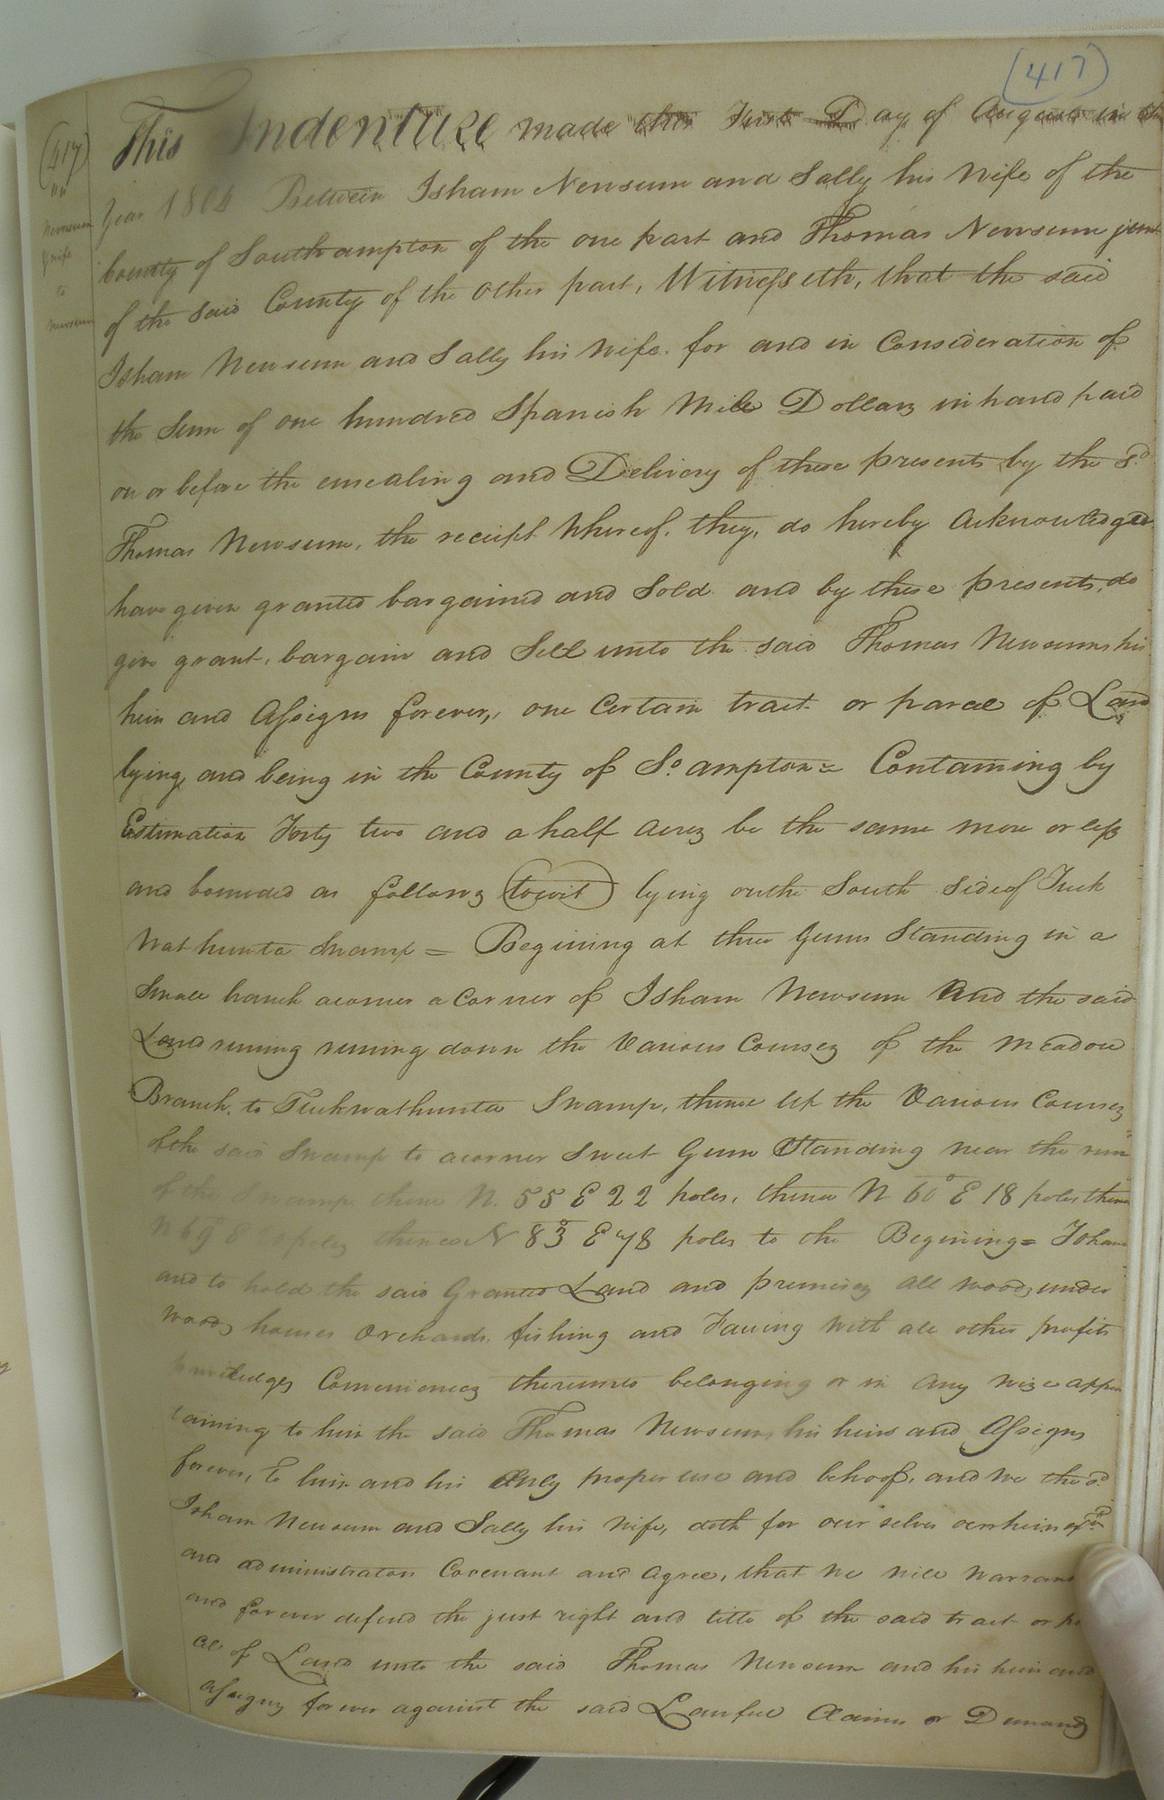 (417)
(417)
Newsum
& wife
to
Newsum
This Indenture made this First Day of August in the
Year 1804 Between Isham Newsum and Sally his Wife of the
County of Southampton of the one part and Thomas Newsum junr
of the said County of the Other part, Witnesseth, that the said
Isham Newsum and Sally his Wife. for and in Consideration of
the Sum of one hundred Spanish Mile Dollars in hand paid
on or before the ensealing and Delivery of these presents by the Sd
Thomas Newsum, the receipt Whereof, they, do hereby Acknowledged
have given granted bargained and Sold and by these presents, do
give grant, bargain and Sell unto the said Thomas Newsum his
heirs and Assigns forever, one Certain tract or parcel of Land
lying and being in the County of So ampton = Containing by
Estimation Forty two and a half Acres be the same more or less
and bounded as follows (towit) lying on the South Side of Tuck
Wathunta Swamp = Begining at three Gums Standing in a
Small branch acorner a Corner of Isham Newsum And the said
Land runing runing down the Various Courses of the Meadow
Branch to Tuckwathunta Swamp, thence Up the Various Courses
of the said Swamp to acorner Sweet Gum Standing near the run
of the Swamp thence N. 55 E 22 poles, thence N 60° E 18 poles thence
N 69 E poles thence N 83° E 78 poles to the Begining = To have
and to hold the said Granted Land and premises all woods, under
Woods, houses Orchards, fishing and Fawing With all other profits
priviledges Conveniences thereunto belonging or in Any wise apper
taining to him the said Thomas Newsum, his heirs and Assigns
forever, to him and his Only proper use and behoof, and We the sd
Isham Newsum and Sally his Wife, doth for our selves our heirs exrs
and administrators Covenant and Agree, that We Will Warrant
and forever defend the just right and title of the said tract or par
cel of Land unto the said Thomas Newsum and his heirs and
Assigns forever against the said Lawful Claims or Demands